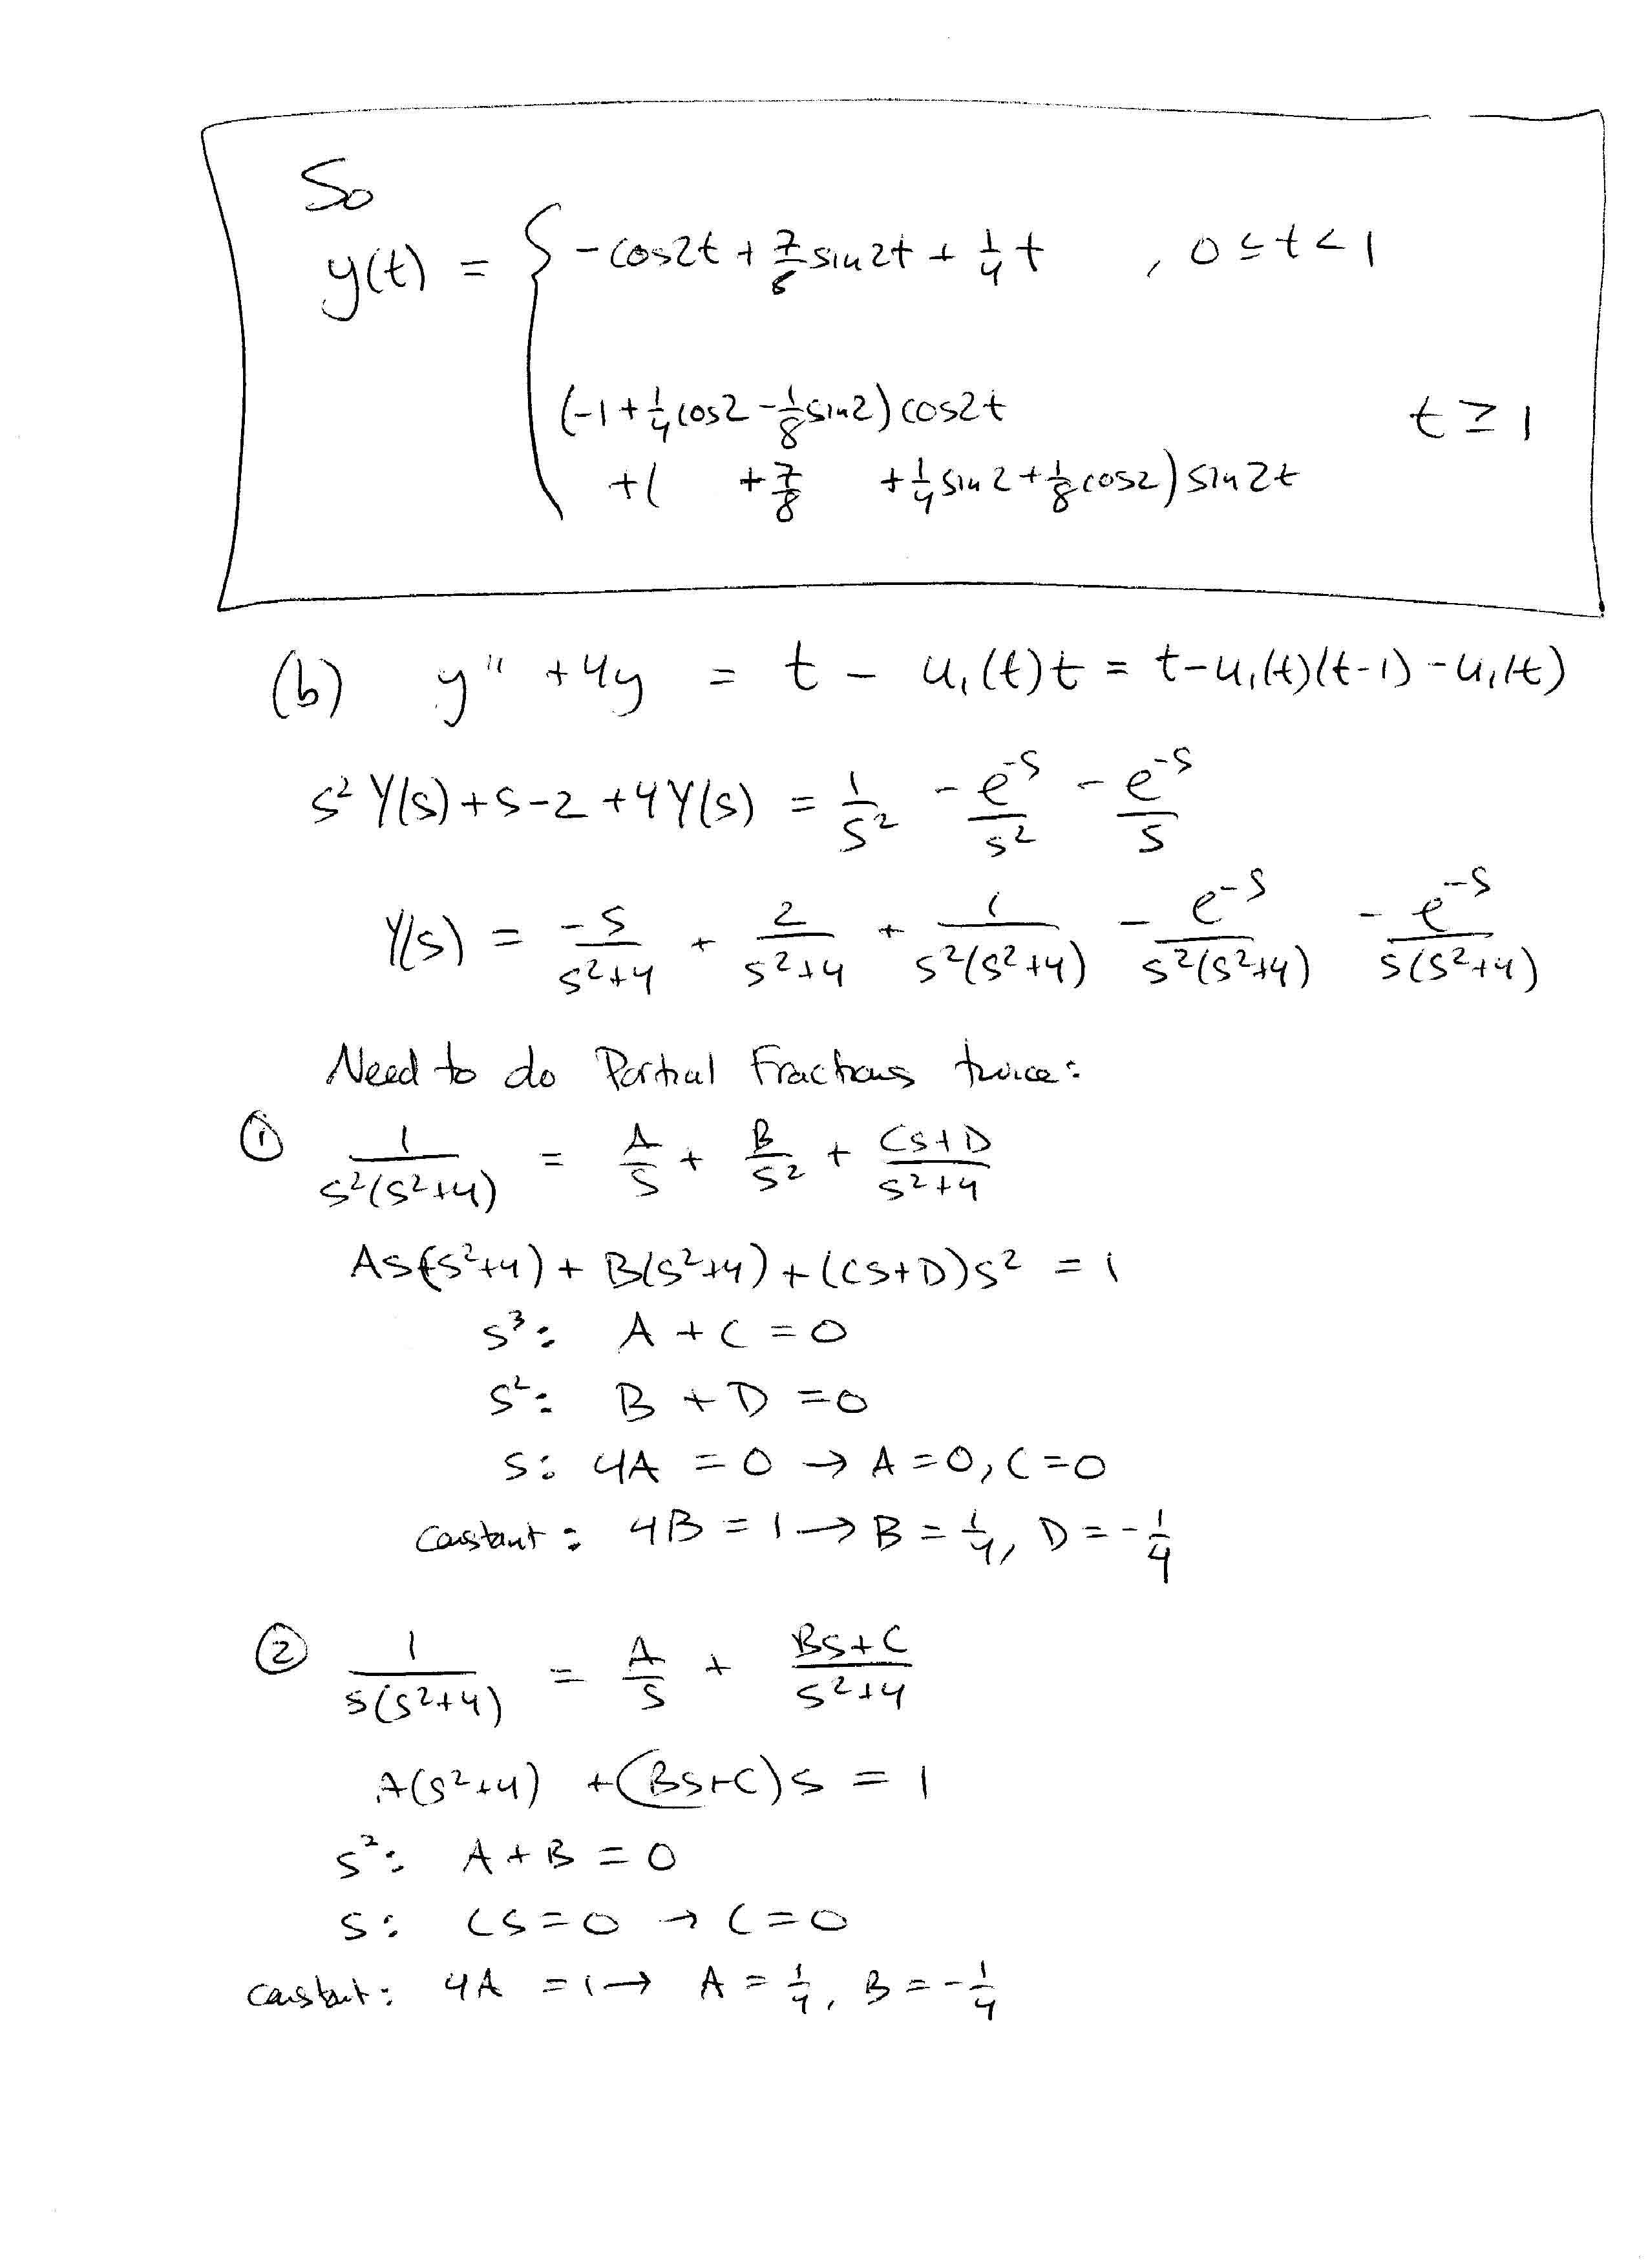 So
y(t) = { -cos2t + 7/8 sin2t + 1/4 t , 0 ≤ t < 1
(-1 + 1/4 cos2 - 1/8 sin2) cos2t t ≥ 1
+( +7/8 + 1/4 sin2 + 1/8 cos2) sin2t
(b) y'' + 4y = t - u₁(t)t = t - u₁(t)(t-1) - u₁(t)
s² Y(s) + s - 2 + 4Y(s) = 1/s² - e^-s/s² - e^-s/s
Y(s) = -s/(s²+4) + 2/(s²+4) + 1/(s²(s²+4)) - e^-s/(s²(s²+4)) - e^-s/(s(s²+4))
Need to do Partial Fractions twice:
① 1/(s²(s²+4)) = A/s + B/s² + (Cs+D)/(s²+4)
As(s²+4) + B(s²+4) + (Cs+D)s² = 1
s³: A + C = 0
s²: B + D = 0
s: 4A = 0 → A = 0, C = 0
constant: 4B = 1 → B = 1/4, D = -1/4
② 1/(s(s²+4)) = A/s + (Bs+C)/(s²+4)
A(s²+4) + (Bs+C)s = 1
s²: A + B = 0
s: Cs = 0 → C = 0
constant: 4A = 1 → A = 1/4, B = -1/4